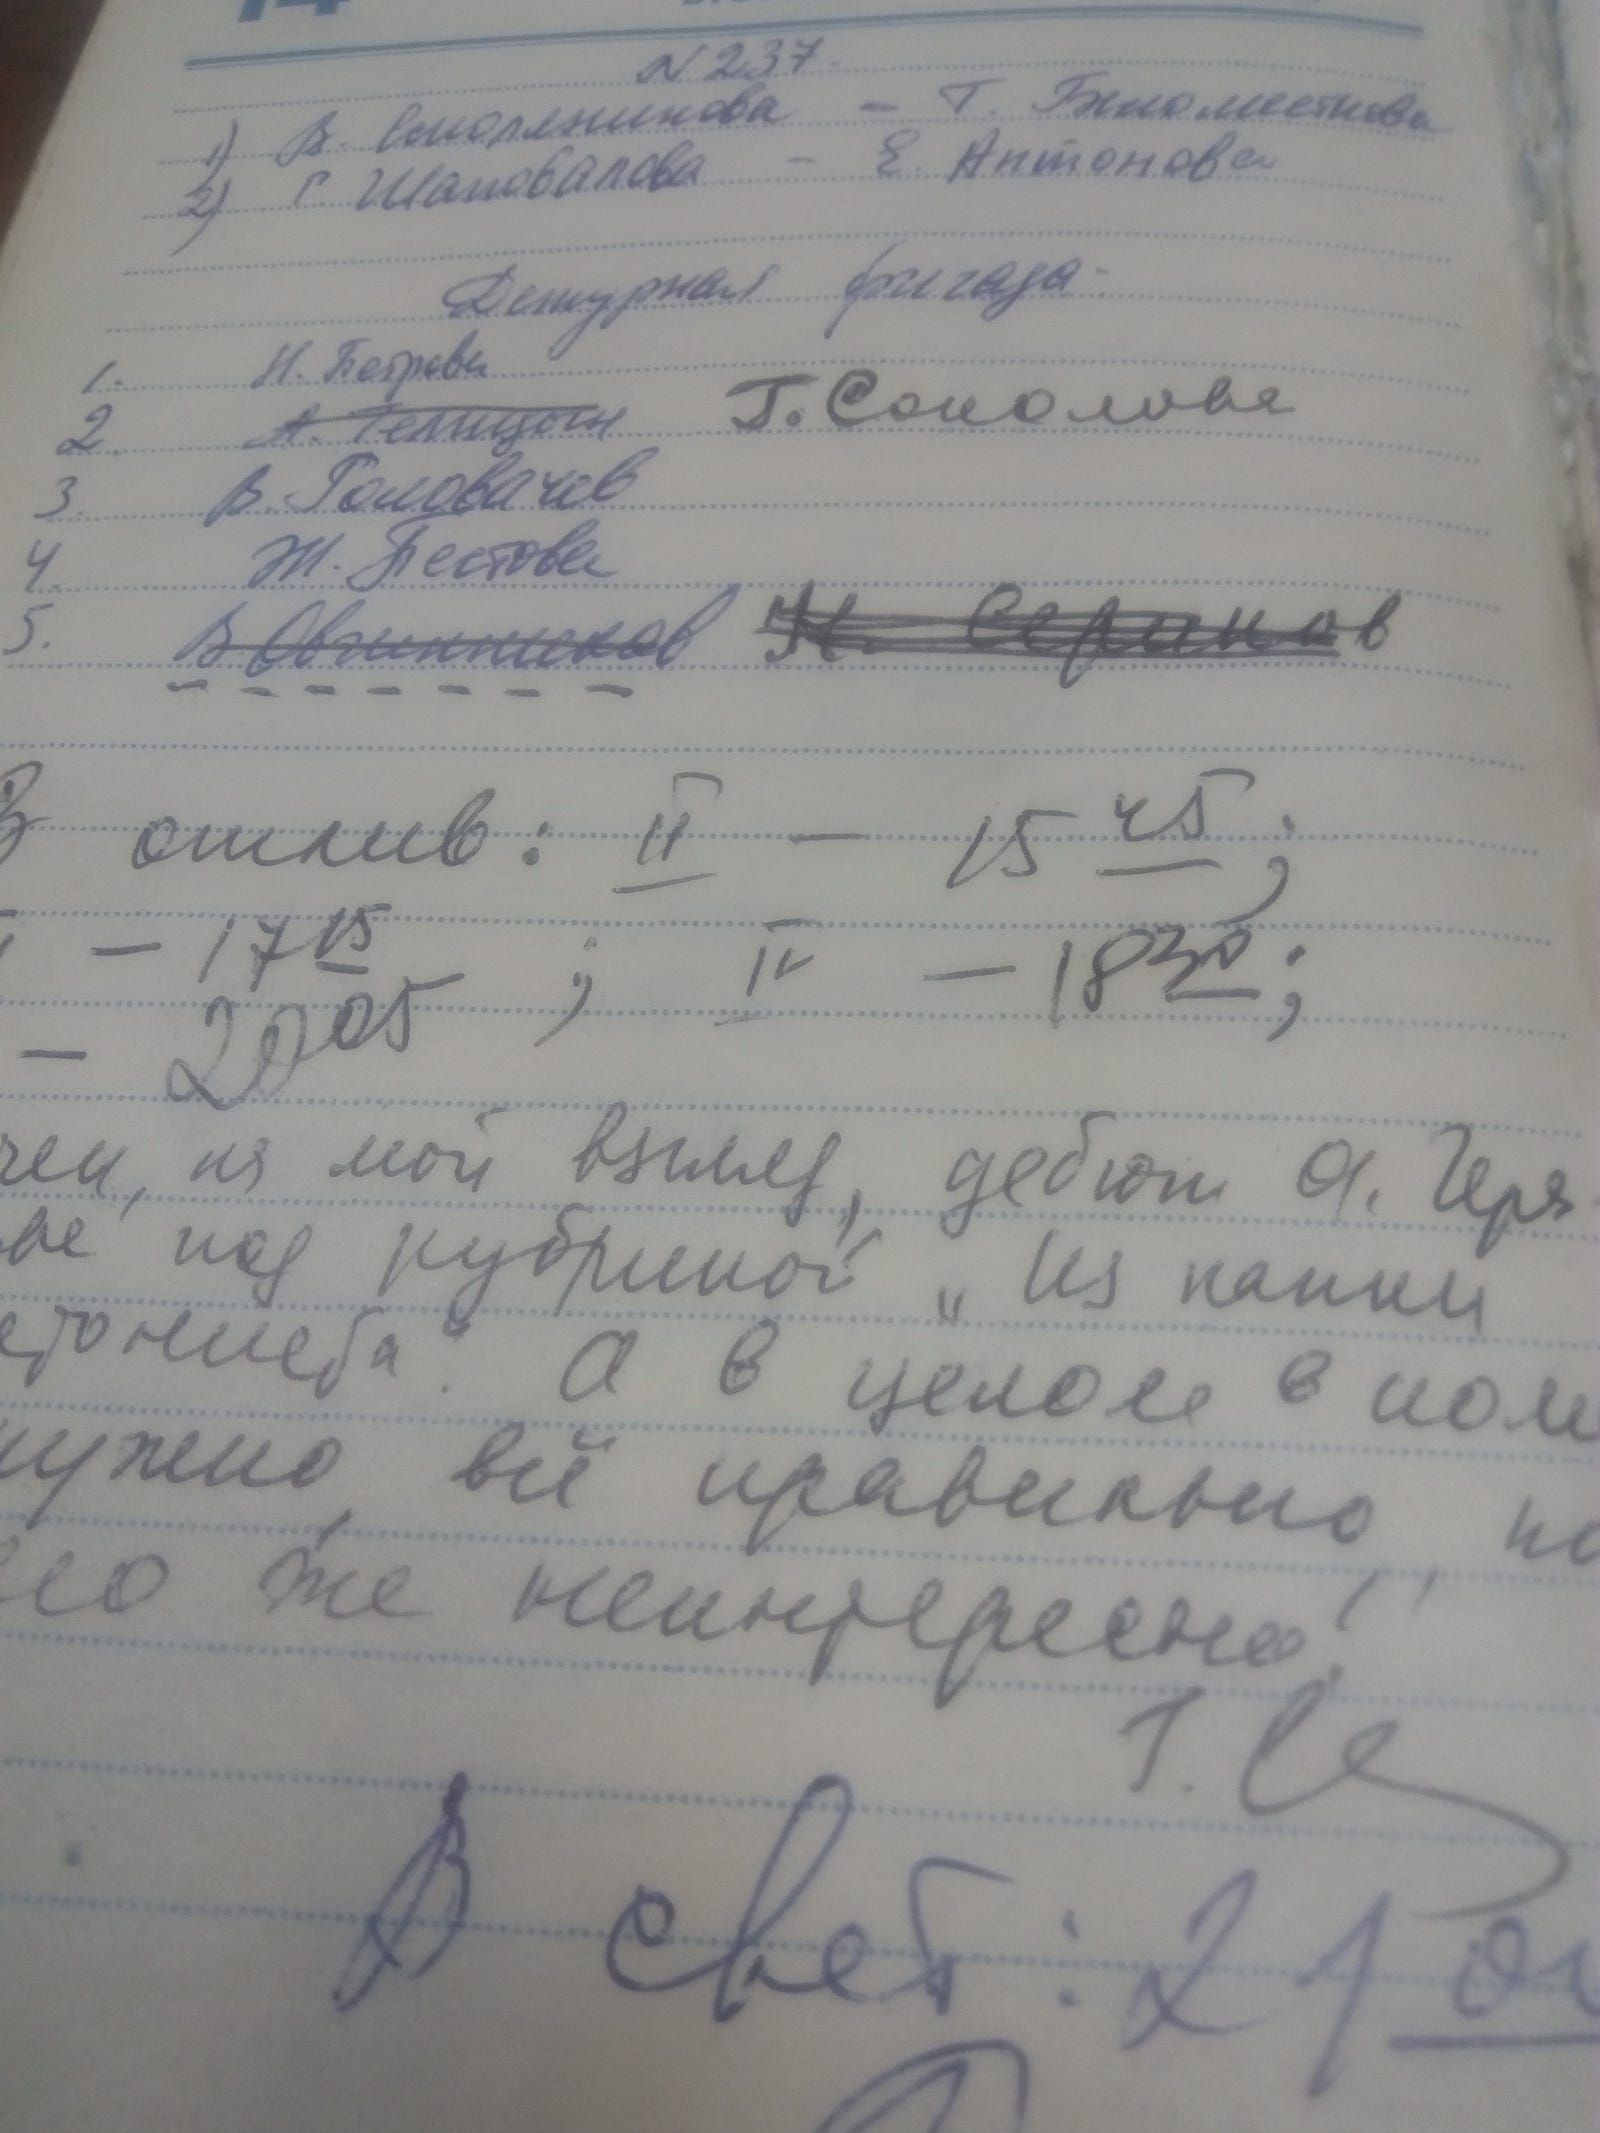 14
N 237.
1) В. Смолянинова – Т. Беломестнова
2) Г. Шаповалова – Е. Антонова
Дежурная бригада:
1. Н. Петрова
2. А. Телицын Г. Соколова
3. В. Головачев
4. Ж. Пестова
5. В Овчинников Н.
В отлив: II – 15 45;
– 17 15; IV – 18 30;
– 20 05
на мой взгляд, дебют А.
под рубрикой „Из папки
А в целом в
нужно, всё правильно,
же неинтересно!
Т. С
В свет: 21